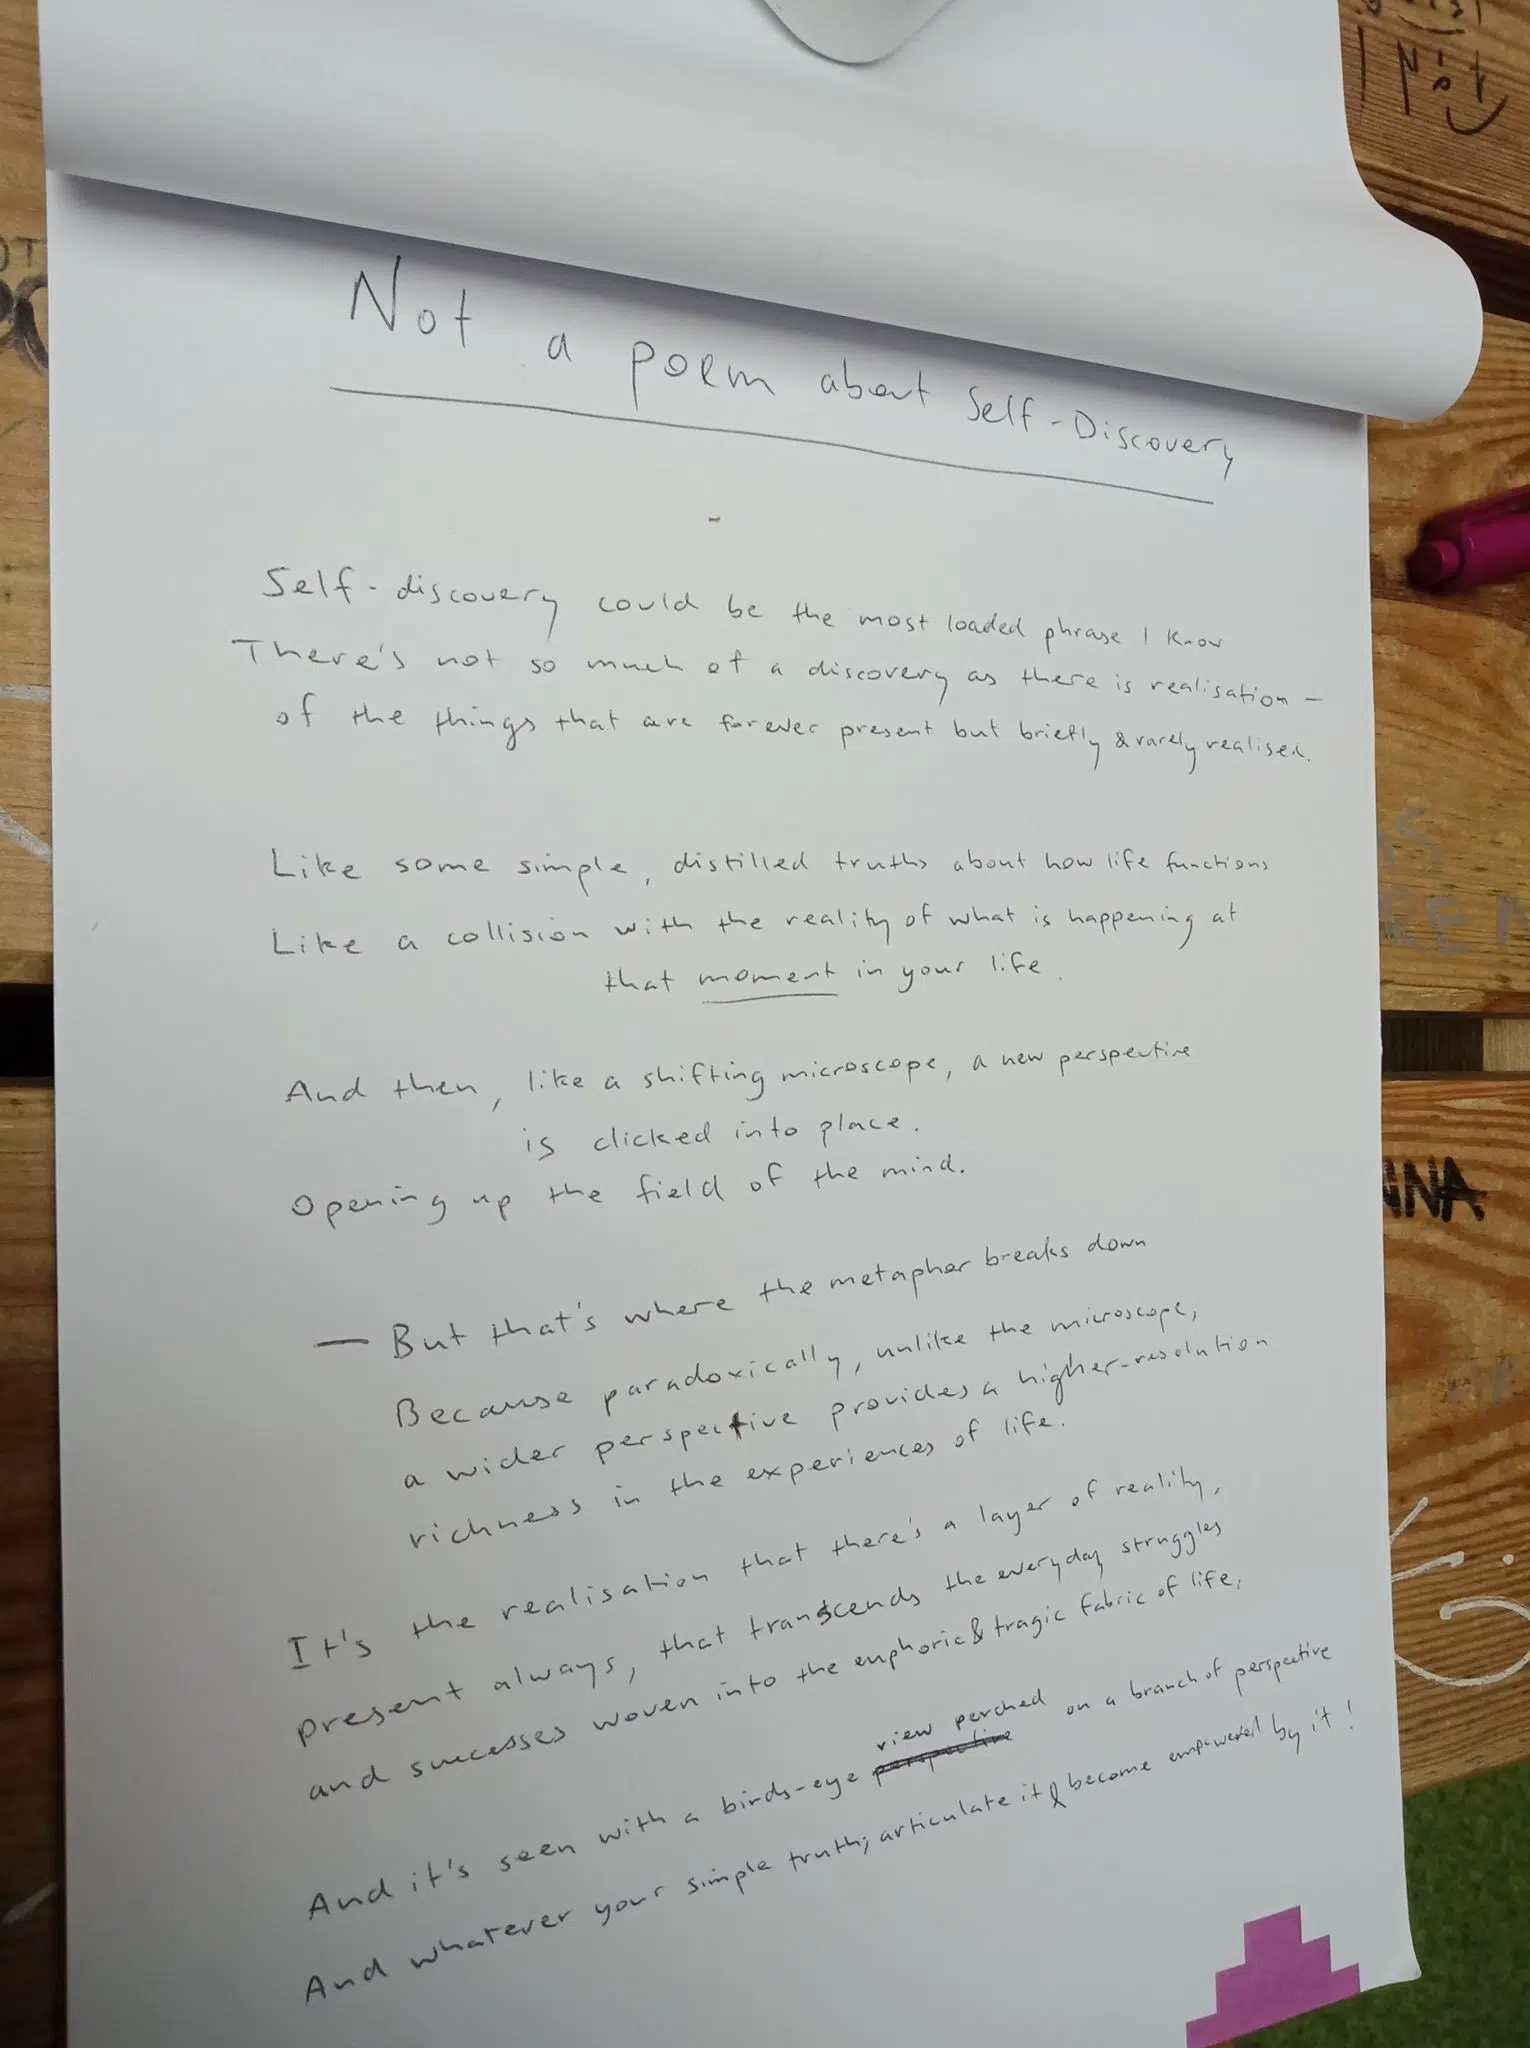 Not a poem about Self-Discovery
Self-discovery could be the most loaded phrase I know
There's not so much of a discovery as there is realisation –
of the things that are forever present but briefly & rarely realised.
Like some simple, distilled truths about how life functions
Like a collision with the reality of what is happening at
that moment in your life.
And then, like a shifting microscope, a new perspective
is clicked into place.
Opening up the field of the mind.
— But that's where the metaphor breaks down
Because paradoxically, unlike the microscope,
a wider perspective provides a higher-resolution
richness in the experiences of life.
It's the realisation that there's a layer of reality,
present always, that transcends the everyday struggles
and successes woven into the euphoric & tragic fabric of life.
And it's seen with a birds-eye perspective view perched on a branch of perspective
And whatever your simple truth; articulate it & become empowered by it!
I Not
NNA